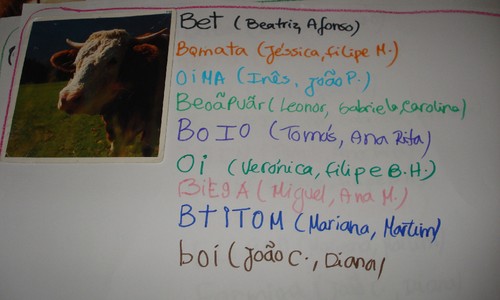 Bet (Beatriz, Afonso)
Bqmata (Jéssica, Filipe M.)
OiMA (Inês, João P.)
BeoãPuãr (Leonor, Gabriela, Carolina)
BOIO (Tomás, Ana Rita)
Oi (Verónica, Filipe B.H.)
BiEGA (Miguel, Ana M.)
BTiTOM (Mariana, Martim)
boi (João C., Diana)